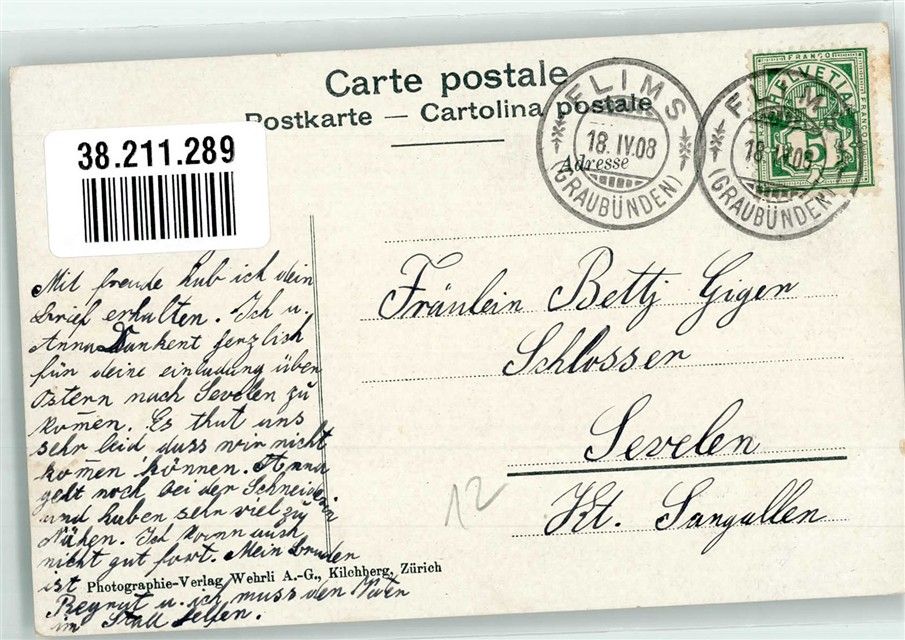 Carte postale
Postkarte — Cartolina postale
Adresse
38.211.289
FLIMS
18.IV.08
(GRAUBÜNDEN)
FLIMS
18.IV.08
(GRAUBÜNDEN)
FRANCO
HELVETIA
5
Mit freude hab ich dein
Brief erhalten. Ich u.
Anna Dankent herzlich
für deine einladung über
Ostern nach Sevelen zu
komen. Es thut uns
sehr leid dass wir nicht
komen können. Anna
geht noch bei der Schneiderin
und haben sehr viel zu
Nähen. Ich kann auch
nicht gut fort. Mein bruder
ist
u. ich muss den Vater
im Stall helfen.
Photographie-Verlag Wehrli A.-G., Kilchberg, Zürich
Fräulein Betti Giger
Schlosser
Sevelen
Kt. Sangallen
12